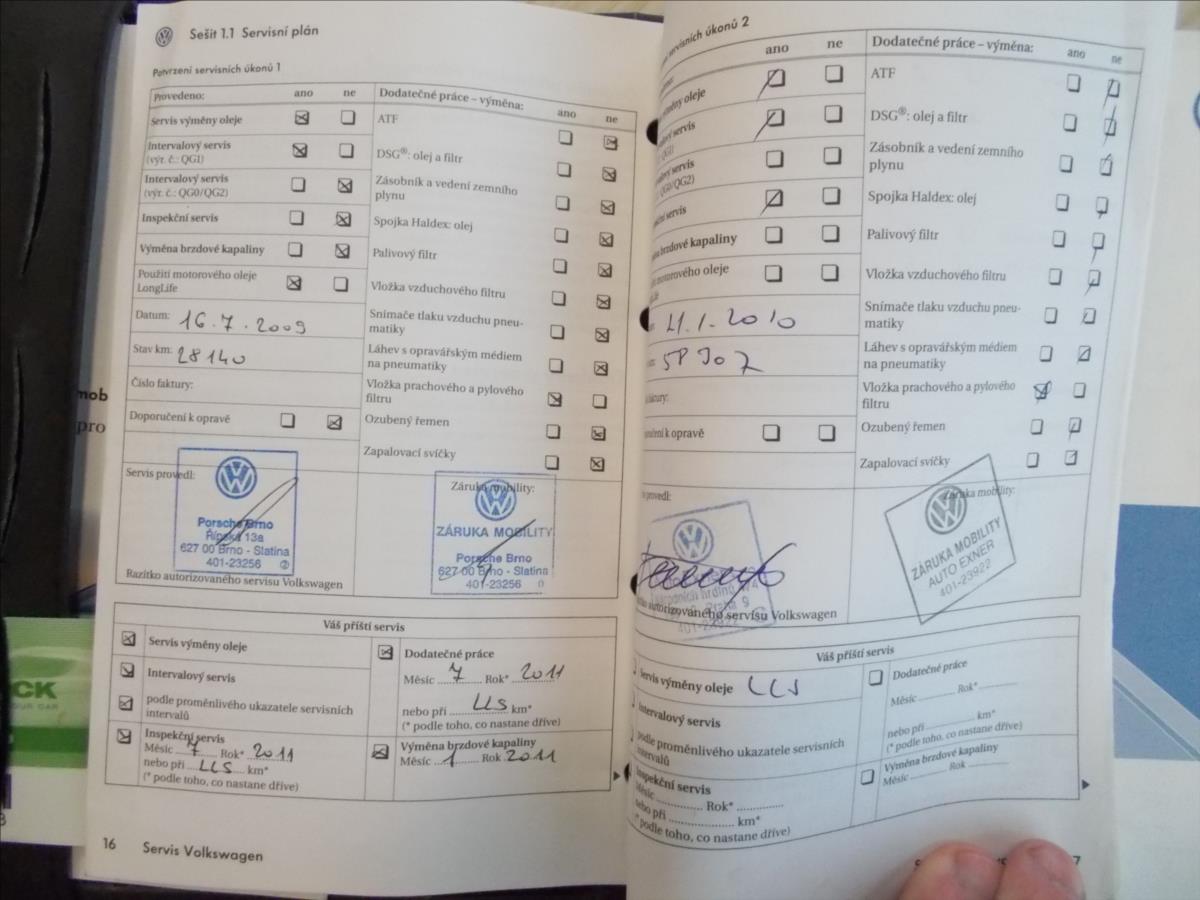 Sešit 1.1 Servisní plán
Potvrzení servisních úkonů 1
Provedeno:
ano
ne
Servis výměny oleje
Intervalový servis
(výr. č.: QG1)
Intervalový servis
(výr. č.: QG0/QG2)
Inspekční servis
Výměna brzdové kapaliny
Použití motorového oleje
LongLife
Datum: 16.7.2009
Stav km: 28140
Číslo faktury:
Doporučení k opravě
Servis provedl:
Porsche Brno
Řípská 13a
627 00 Brno - Slatina
401-23256
Razítko autorizovaného servisu Volkswagen
Dodatečné práce – výměna:
ano
ne
ATF
DSG®: olej a filtr
Zásobník a vedení zemního
plynu
Spojka Haldex: olej
Palivový filtr
Vložka vzduchového filtru
Snímače tlaku vzduchu pneu-
matiky
Láhev s opravářským médiem
na pneumatiky
Vložka prachového a pylového
filtru
Ozubený řemen
Zapalovací svíčky
Záruka mobility:
ZÁRUKA MOBILITY
Porsche Brno
627 00 Brno - Slatina
401-23256
Váš příští servis
Servis výměny oleje
Intervalový servis
podle proměnlivého ukazatele servisních
intervalů
Inspekční servis
Měsíc 7 Rok* 2011
nebo při LLS km*
(* podle toho, co nastane dříve)
Dodatečné práce
Měsíc 7 Rok* 2011
nebo při LLS km*
(* podle toho, co nastane dříve)
Výměna brzdové kapaliny
Měsíc 1 Rok 2011
16 Servis Volkswagen
servisních úkonů 2
ano
ne
výměny oleje
servis
QG1)
servis
QG0/QG2)
servis
brzdové kapaliny
motorového oleje
21.1.2010
faktury:
k opravě
provedl:
401-23922
autorizovaného servisu Volkswagen
Dodatečné práce – výměna:
ano
ne
ATF
DSG®: olej a filtr
Zásobník a vedení zemního
plynu
Spojka Haldex: olej
Palivový filtr
Vložka vzduchového filtru
Snímače tlaku vzduchu pneu-
matiky
Láhev s opravářským médiem
na pneumatiky
Vložka prachového a pylového
filtru
Ozubený řemen
Zapalovací svíčky
Záruka mobility:
ZÁRUKA MOBILITY
AUTO EXNER
401-23922
Váš příští servis
Servis výměny oleje LLS
Intervalový servis
podle proměnlivého ukazatele servisních
intervalů
Inspekční servis
Měsíc Rok*
nebo při km*
(* podle toho, co nastane dříve)
Dodatečné práce
Měsíc Rok*
nebo při km*
(* podle toho, co nastane dříve)
Výměna brzdové kapaliny
Měsíc Rok
7
mob
pro
CK
OUR CAR